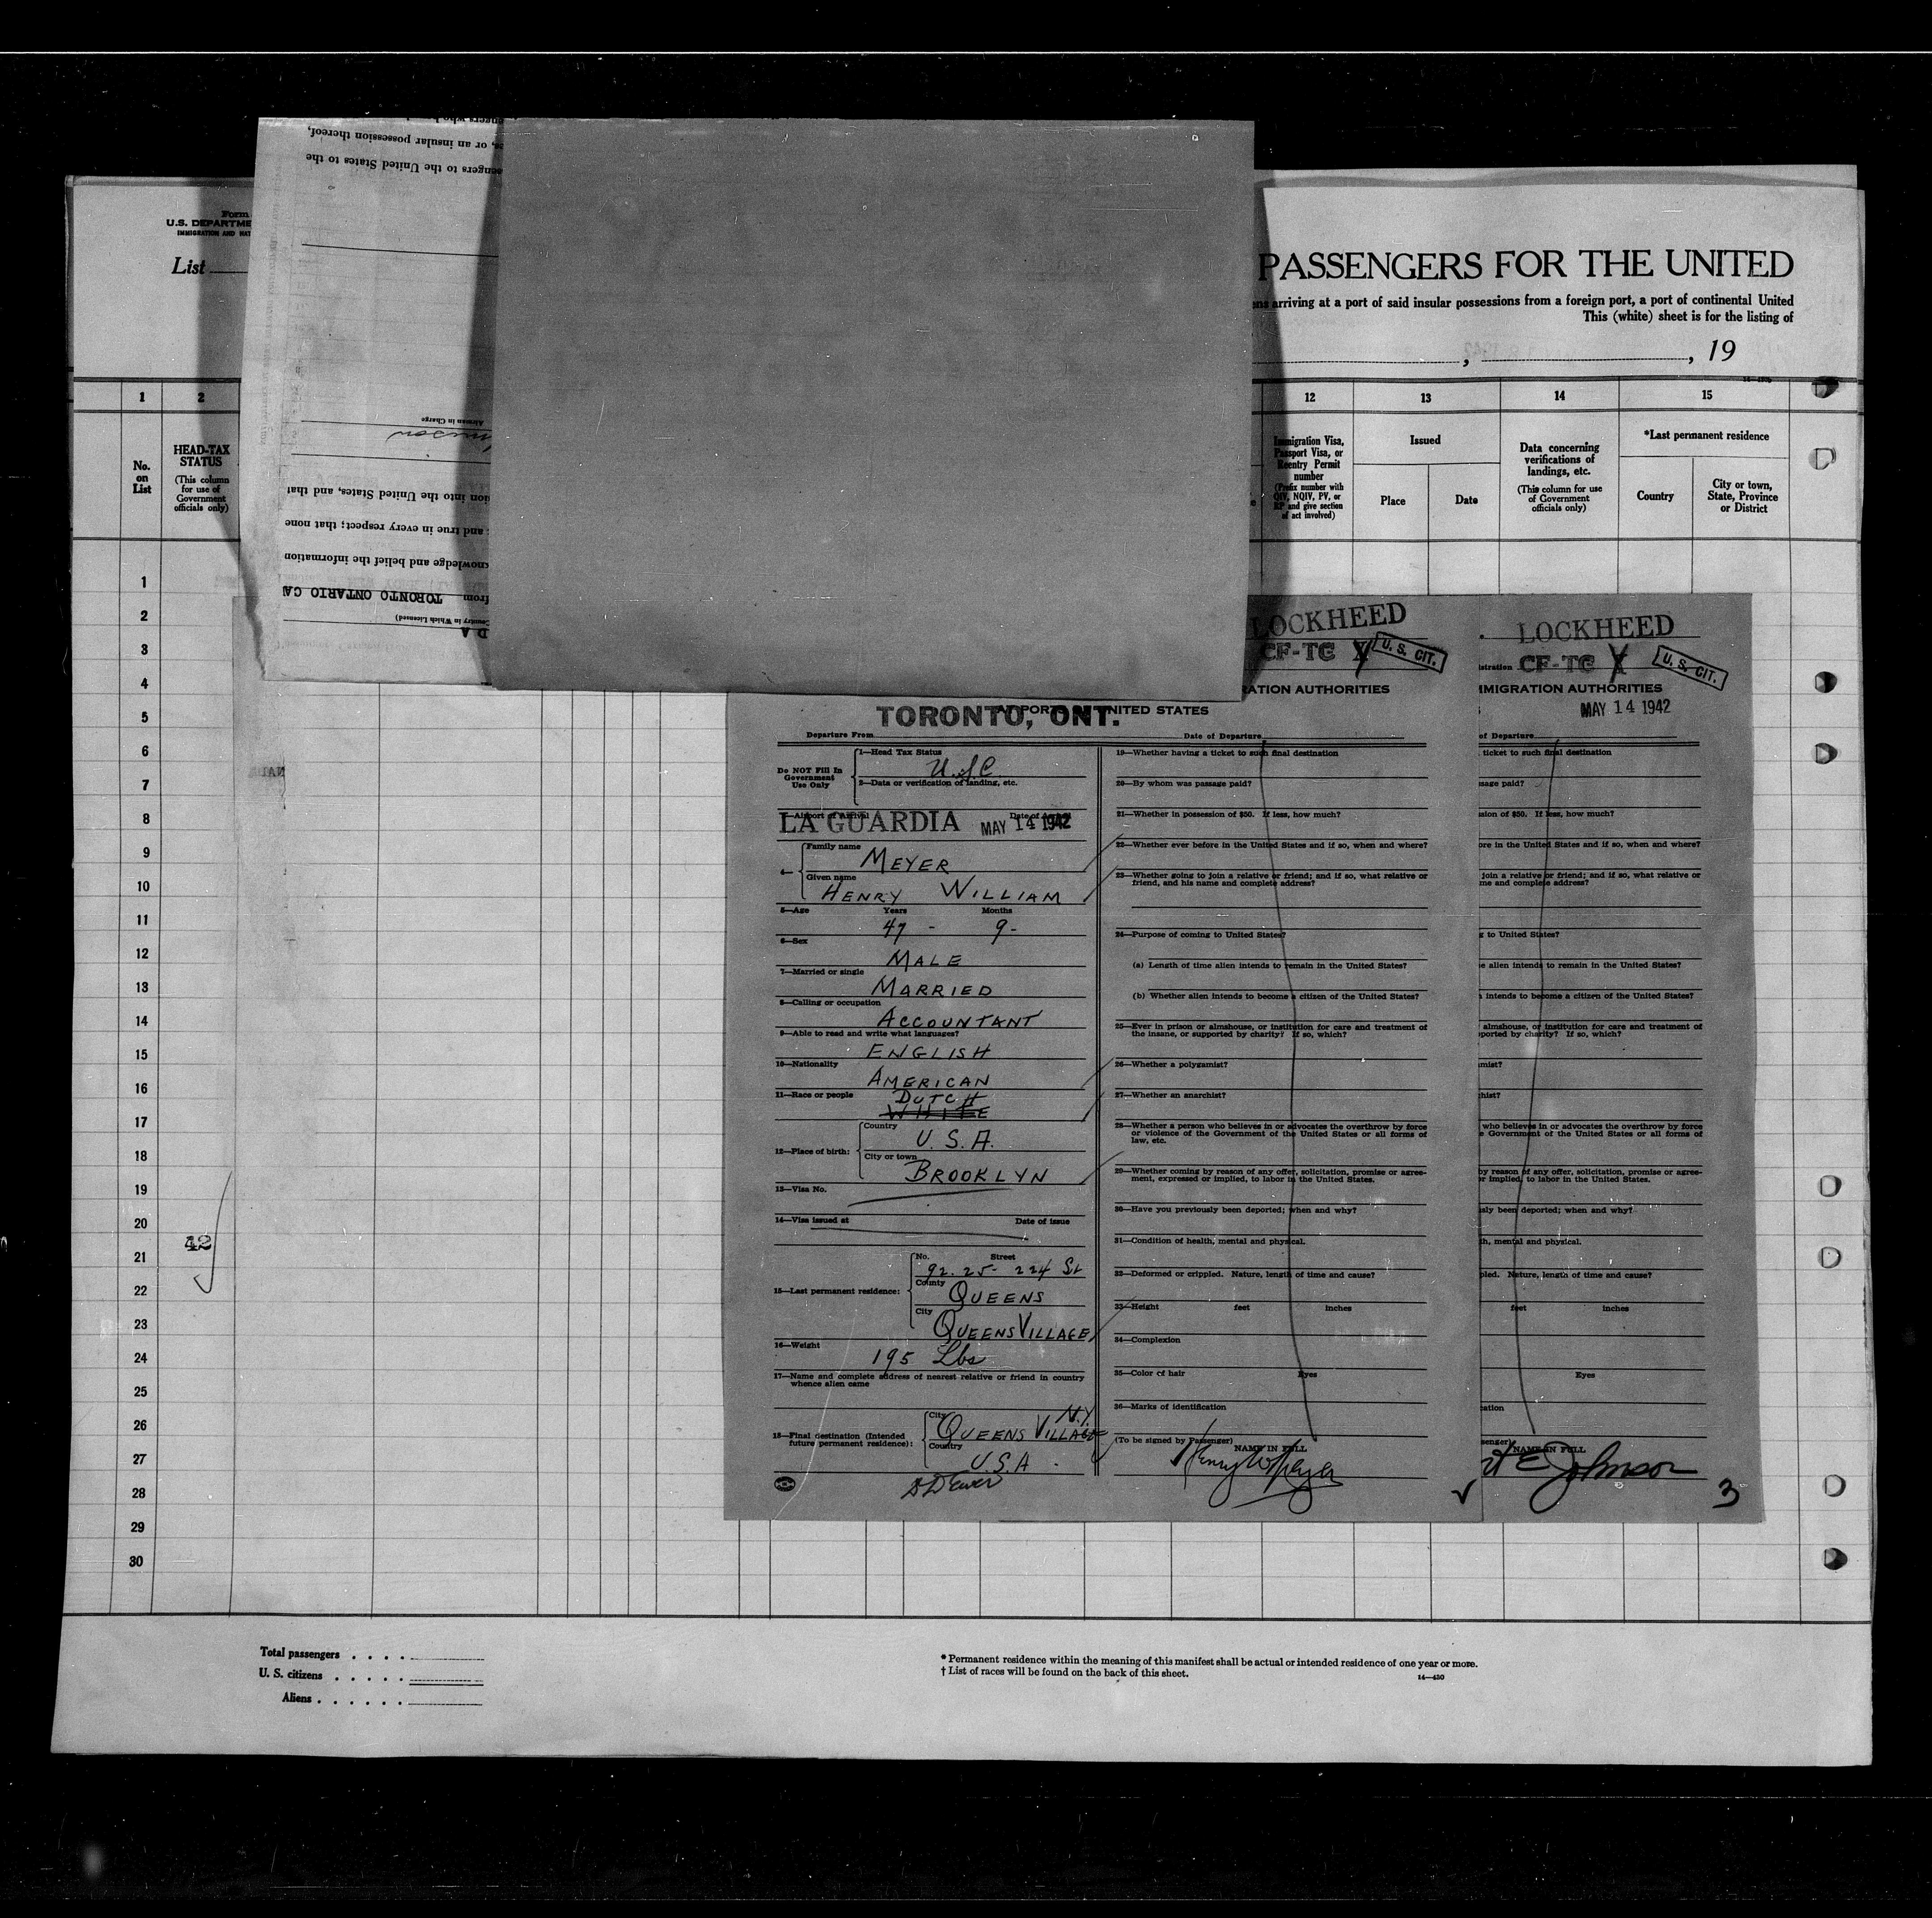 engers who
es, or an insular possession thereof,
engers to the United States to the
Form
U.S. DEPARTME
IMMIGRATION AND NAT
List
PASSENGERS FOR THE UNITED
ons arriving at a port of said insular possessions from a foreign port, a port of continental United
This (white) sheet is for the listing of
, , 19
1 2 12 13 14 15
No. on List
HEAD-TAX STATUS
(This column for use of Government officials only)
Immigration Visa, Passport Visa, or Reentry Permit number
(Prefix number with QIV, NQIV, PV, or RP and give section of act involved)
Issued
Place Date
Data concerning verifications of landings, etc.
(This column for use of Government officials only)
*Last permanent residence
Country
City or town, State, Province or District
Airman in Charge
ion into the United States, and that
and true in every respect; that none
knowledge and belief the information
from TORONTO ONTARIO CA
Country in Which Licensed)
DA
NADA
1
2
3
4
5
6
7
8
9
10
11
12
13
14
15
16
17
18
19
20
42
21
22
23
24
25
26
27
28
29
30
LOCKHEED
CF-TC
U. S. CIT.
RATION AUTHORITIES
AIRPORTS UNITED STATES
TORONTO, ONT.
Departure From Date of Departure
Do NOT Fill In Government Use Only
1—Head Tax Status
U.S.C
2—Data or verification of landing, etc.
3—Airport of Arrival
LA GUARDIA MAY 14 1942
4—
Family name
MEYER
Given name
HENRY WILLIAM
5—Age Years Months
47 - 9-
6—Sex
MALE
7—Married or single
MARRIED
8—Calling or occupation
ACCOUNTANT
9—Able to read and write what languages?
ENGLISH
10—Nationality
AMERICAN
11—Race or people
DUTCH
WHITE
12—Place of birth:
Country
U.S.A.
City or town
BROOKLYN
13—Visa No.
14—Visa issued at Date of issue
15—Last permanent residence:
No. Street
92.25- 224 St
County
QUEENS
City
QUEENS VILLAGE
16—Weight
195 Lbs
17—Name and complete address of nearest relative or friend in country whence alien came
18—Final destination (Intended future permanent residence):
City
N.Y.
QUEENS VILLAGE
Country
U.S.A.
19—Whether having a ticket to such final destination
20—By whom was passage paid?
21—Whether in possession of $50. If less, how much?
22—Whether ever before in the United States and if so, when and where?
23—Whether going to join a relative or friend; and if so, what relative or
friend, and his name and complete address?
24—Purpose of coming to United States?
(a) Length of time alien intends to remain in the United States?
(b) Whether alien intends to become a citizen of the United States?
25—Ever in prison or almshouse, or institution for care and treatment of
the insane, or supported by charity? If so, which?
26—Whether a polygamist?
27—Whether an anarchist?
28—Whether a person who believes in or advocates the overthrow by force
or violence of the Government of the United States or all forms of
law, etc.
29—Whether coming by reason of any offer, solicitation, promise or agree-
ment, expressed or implied, to labor in the United States.
30—Have you previously been deported; when and why?
31—Condition of health, mental and physical.
32—Deformed or crippled. Nature, length of time and cause?
33—Height feet inches
34—Complexion
35—Color of hair Eyes
36—Marks of identification
(To be signed by Passenger)
NAME IN FULL
Henry W Meyer
LOCKHEED
istration CF-TC
U. S. CIT.
MMIGRATION AUTHORITIES
MAY 14 1942
of Departure
ticket to such final destination
sage paid?
sion of $50. If less, how much?
ore in the United States and if so, when and where?
join a relative or friend; and if so, what relative or
me and complete address?
g to United States?
e alien intends to remain in the United States?
intends to become a citizen of the United States?
almshouse, or institution for care and treatment of
ported by charity? If so, which?
mist?
hist?
who believes in or advocates the overthrow by force
e Government of the United States or all forms of
by reason of any offer, solicitation, promise or agree-
or implied, to labor in the United States.
sly been deported; when and why?
h, mental and physical.
pled. Nature, length of time and cause?
feet inches
Eyes
cation
senger)
NAME IN FULL
rt E Johnson
3
Total passengers
U. S. citizens
Aliens
* Permanent residence within the meaning of this manifest shall be actual or intended residence of one year or more.
† List of races will be found on the back of this sheet.
14—450